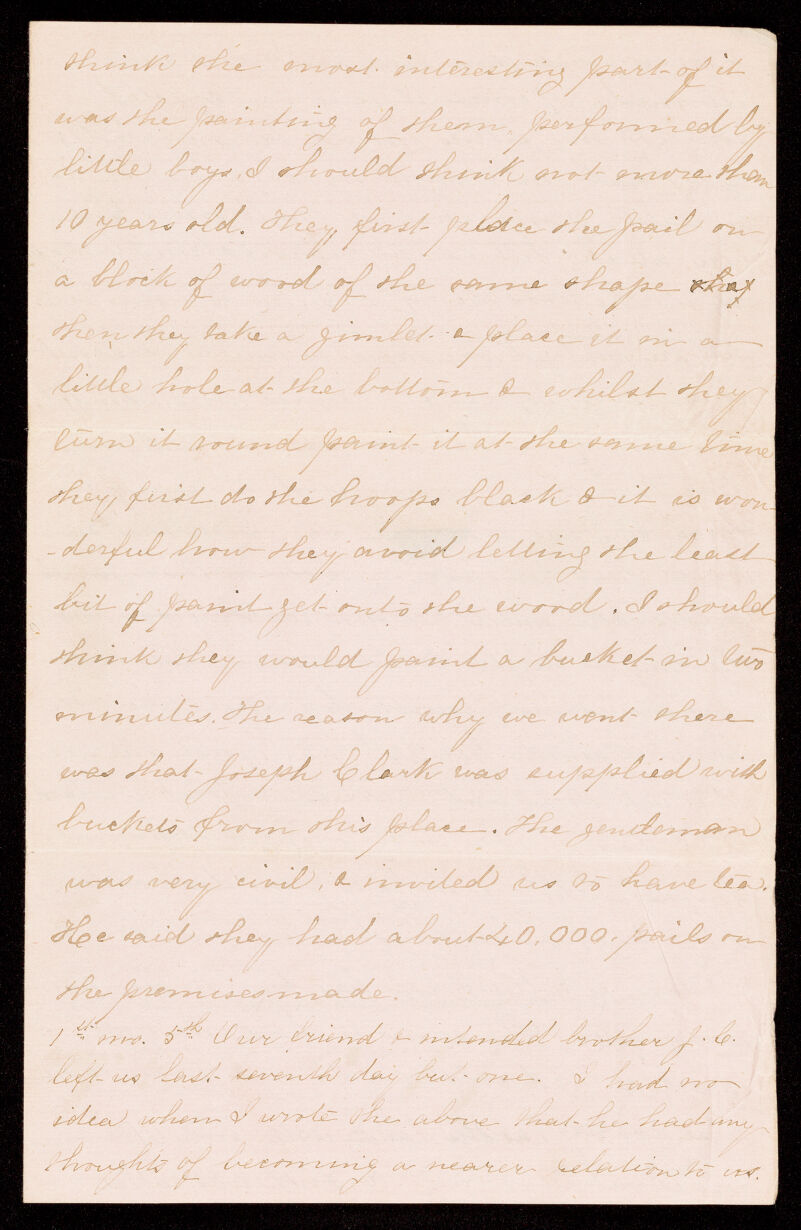 think the most interesting part of it
was the painting of them, performed by
little boys, I should think not more than
10 years old. They, first place the pail on
a block of wood of the same shape
then they take a gimlet & place it in a
little hole at the bottom & whilst they
turn it round paint it at the same time
they, first do the hoops black & it is won
-derful how they avoid letting the least
bit of paint get onto the wood. I should
think they would paint a bucket in two
minutes. The reason why we went there
was that Joseph Clark was supplied with
buckets from this place. The gentleman
was very civil, & invited us to have tea.
He said they had about 40,000. pails on
the premises made.
1st mo. 5th Our friend & intended brother J. C.
left us last seventh day but one. I had no
idea when I wrote the above that he had any
thoughts of becoming a nearer relation to us.